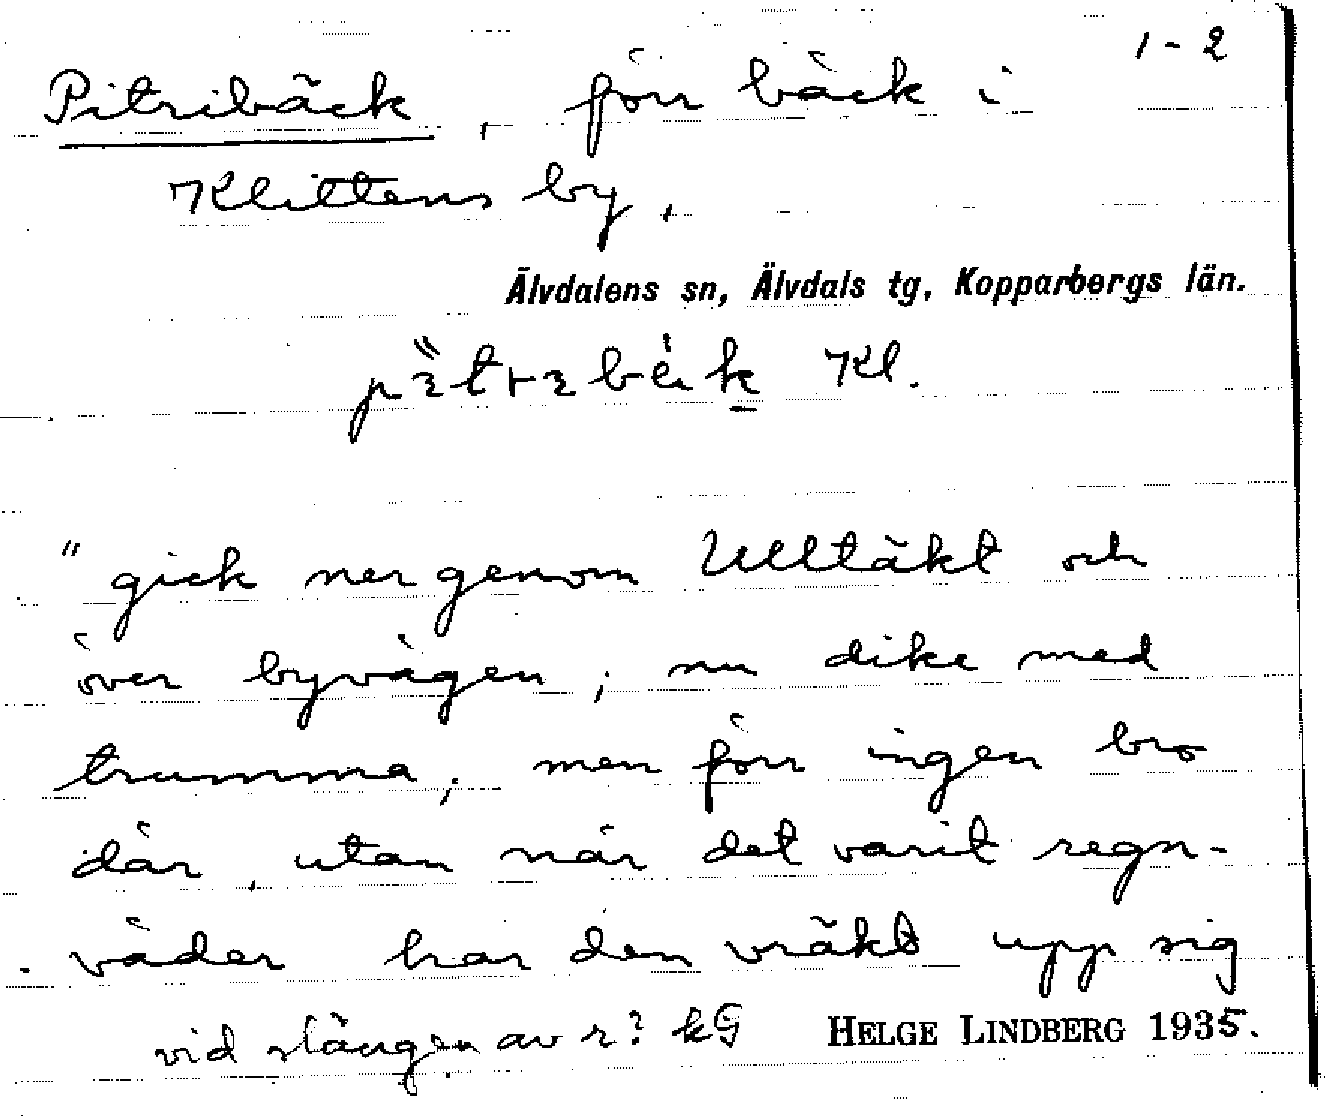 1-2
Pitribäck, förr bäck i
Klittens by,
Älvdalens sn, Älvdals tg, Kopparbergs län.
Kl.
" gick ner genom Ulltäkt och
över byvägen; nu dike med
trumma, men förr ingen bro
där, utan när det varit regn-
väder har den vräkt upp sig
vid slängen av r? kG
HELGE LINDBERG 1935.